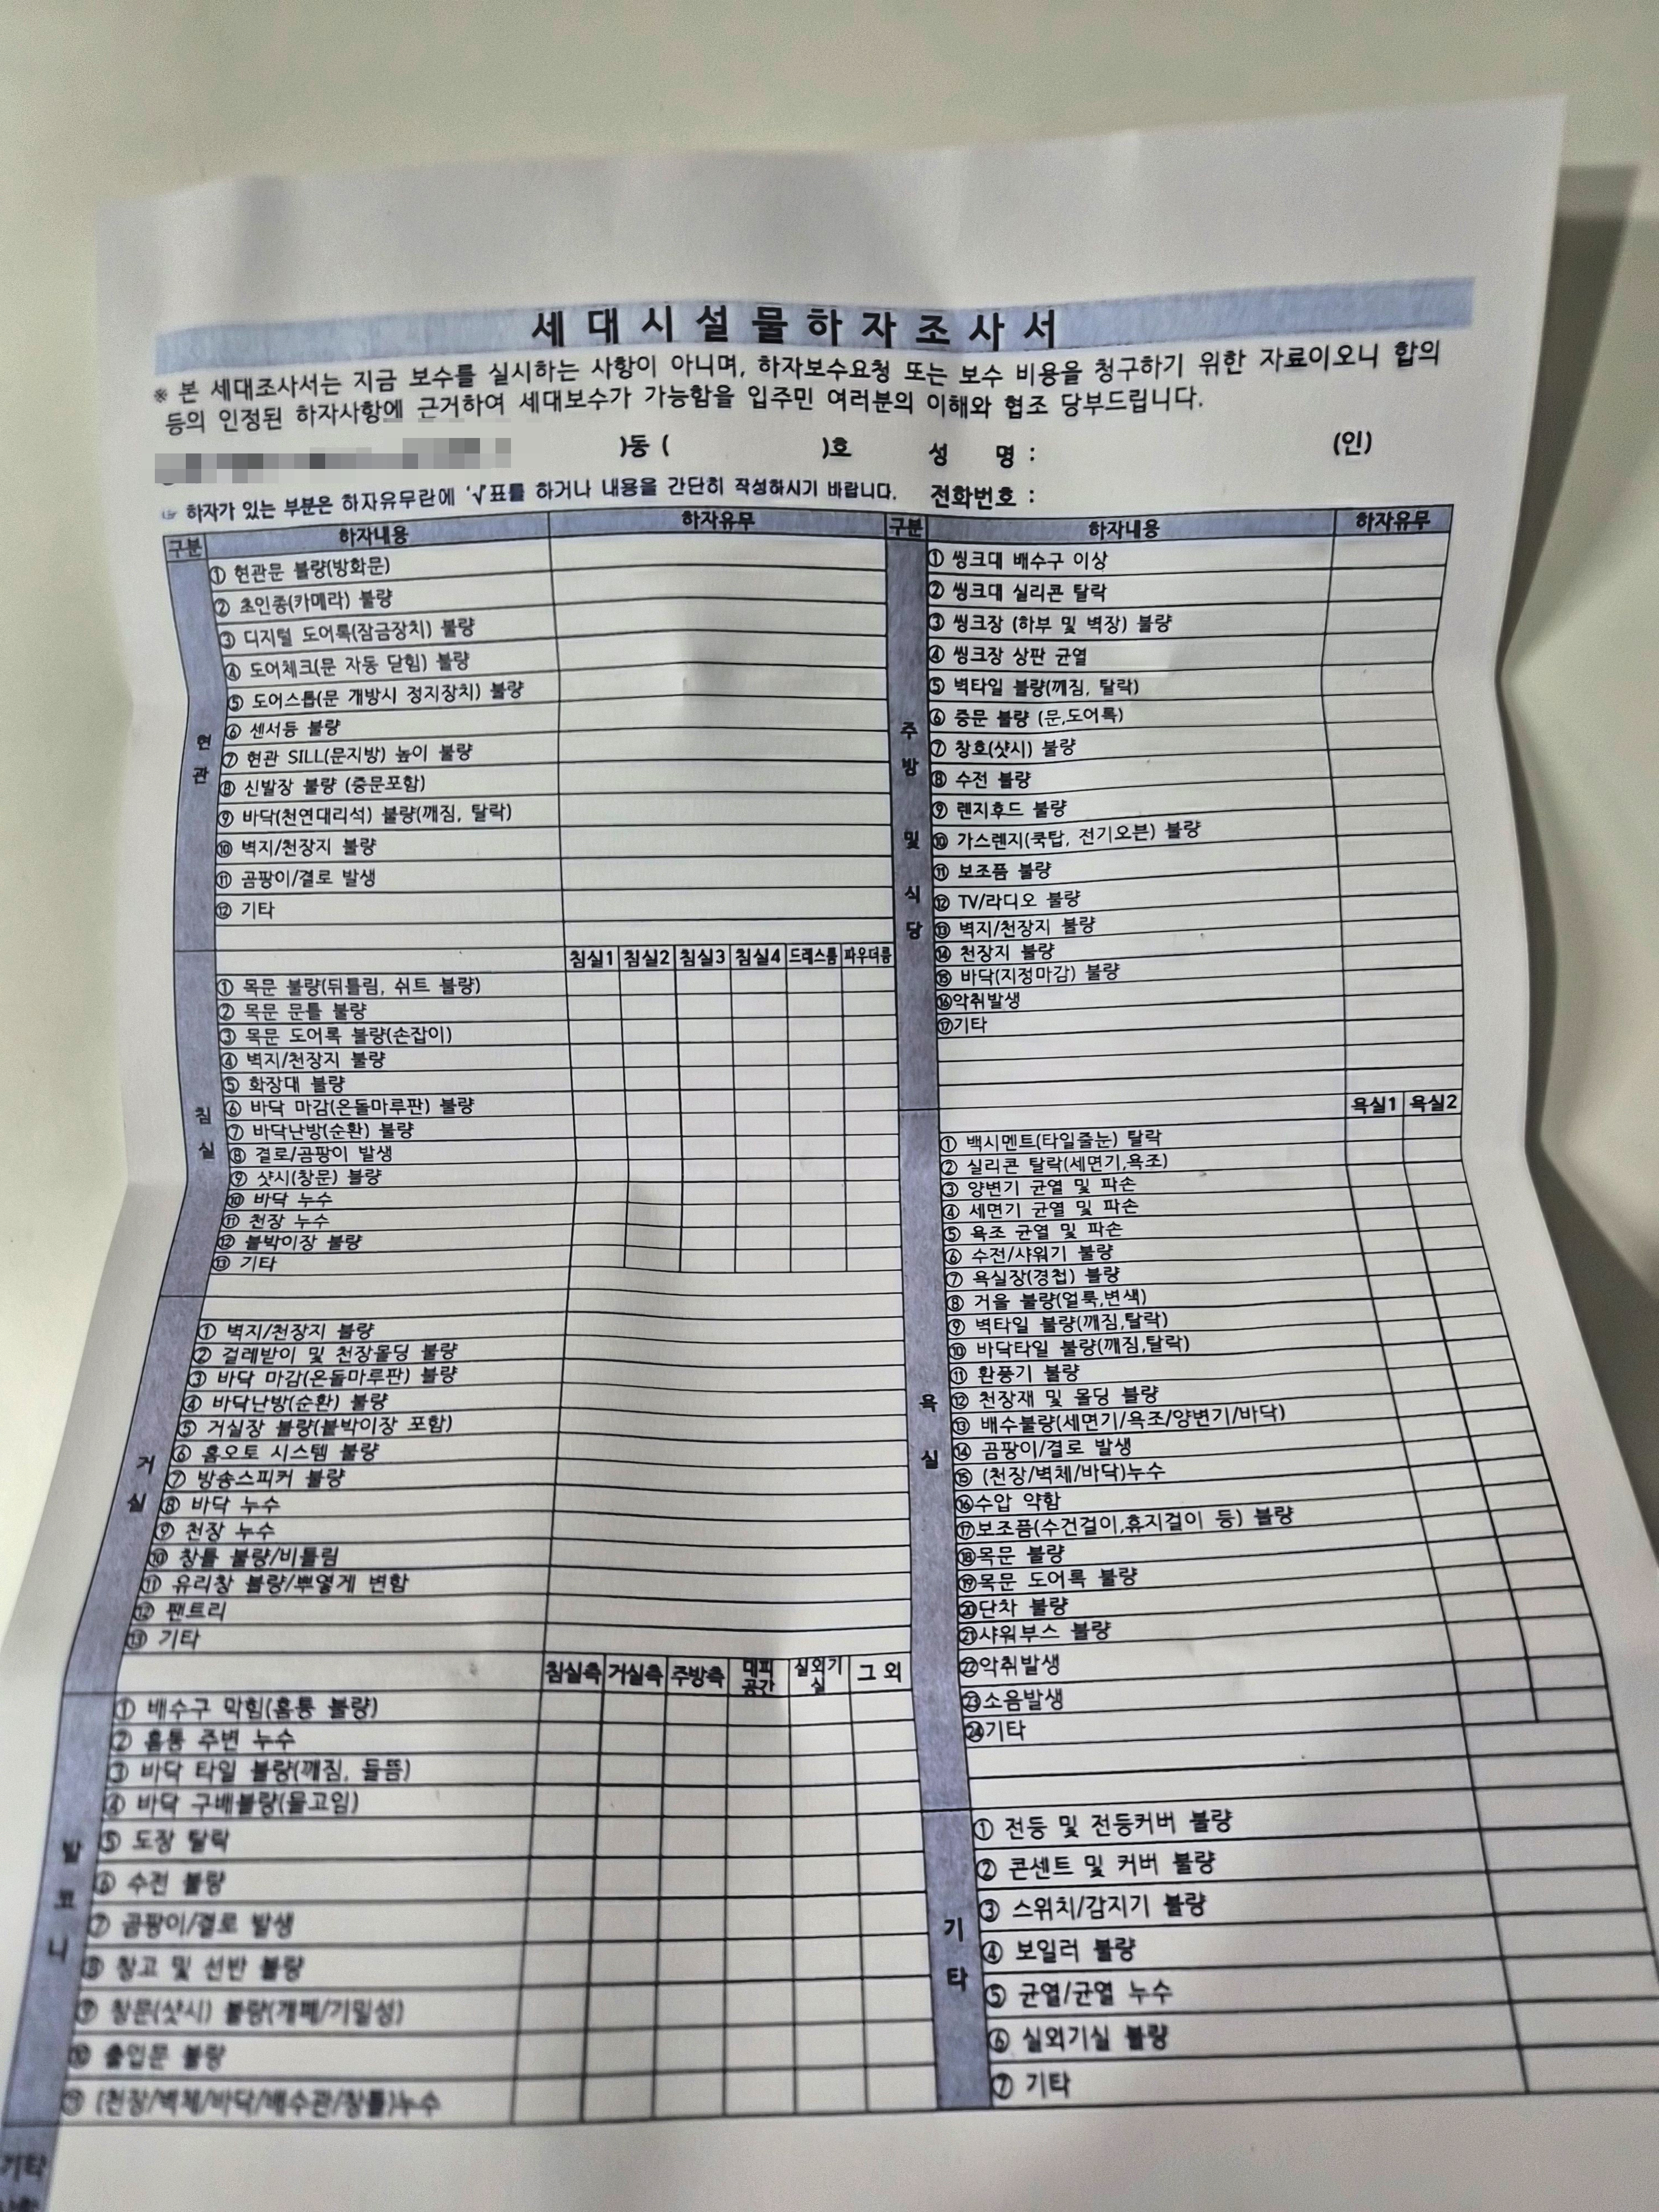 세대시설물하자조사서
※ 본 세대조사서는 지금 보수를 실시하는 사항이 아니며, 하자보수요청 또는 보수 비용을 청구하기 위한 자료이오니 합의
등의 인정된 하자사항에 근거하여 세대보수가 가능함을 입주민 여러분의 이해와 협조 당부드립니다.
)동 ( )호 성 명 : (인)
☞ 하자가 있는 부분은 하자유무란에 '√'표를 하거나 내용을 간단히 작성하시기 바랍니다. 전화번호 :
구분 하자내용 하자유무
현관
① 현관문 불량(방화문)
② 초인종(카메라) 불량
③ 디지털 도어록(잠금장치) 불량
④ 도어체크(문 자동 닫힘) 불량
⑤ 도어스톱(문 개방시 정지장치) 불량
⑥ 센서등 불량
⑦ 현관 SILL(문지방) 높이 불량
⑧ 신발장 불량 (중문포함)
⑨ 바닥(천연대리석) 불량(깨짐, 탈락)
⑩ 벽지/천장지 불량
⑪ 곰팡이/결로 발생
⑫ 기타
침실1 침실2 침실3 침실4 드레스룸 파우더룸
침실
① 목문 불량(뒤틀림, 쉬트 불량)
② 목문 문틀 불량
③ 목문 도어록 불량(손잡이)
④ 벽지/천장지 불량
⑤ 화장대 불량
⑥ 바닥 마감(온돌마루판) 불량
⑦ 바닥난방(순환) 불량
⑧ 결로/곰팡이 발생
⑨ 샷시(창문) 불량
⑩ 바닥 누수
⑪ 천장 누수
⑫ 붙박이장 불량
⑬ 기타
거실
① 벽지/천장지 불량
② 걸레받이 및 천장몰딩 불량
③ 바닥 마감(온돌마루판) 불량
④ 바닥난방(순환) 불량
⑤ 거실장 불량(붙박이장 포함)
⑥ 홈오토 시스템 불량
⑦ 방송스피커 불량
⑧ 바닥 누수
⑨ 천장 누수
⑩ 창틀 불량/비틀림
⑪ 유리창 불량/뿌옇게 변함
⑫ 팬트리
⑬ 기타
침실측 거실측 주방측 대피공간 실외기실 그 외
발코니
① 배수구 막힘(홈통 불량)
② 홈통 주변 누수
③ 바닥 타일 불량(깨짐, 들뜸)
④ 바닥 구배불량(물고임)
⑤ 도장 탈락
⑥ 수전 불량
⑦ 곰팡이/결로 발생
⑧ 창고 및 선반 불량
⑨ 창문(샷시) 불량(개폐/기밀성)
⑩ 출입문 불량
⑪ (천장/벽체/바닥/배수관/창틀)누수
기타
구분 하자내용 하자유무
주방 및 식당
① 씽크대 배수구 이상
② 씽크대 실리콘 탈락
③ 씽크장 (하부 및 벽장) 불량
④ 씽크장 상판 균열
⑤ 벽타일 불량(깨짐, 탈락)
⑥ 중문 불량 (문,도어록)
⑦ 창호(샷시) 불량
⑧ 수전 불량
⑨ 렌지후드 불량
⑩ 가스렌지(쿡탑, 전기오븐) 불량
⑪ 보조품 불량
⑫ TV/라디오 불량
⑬ 벽지/천장지 불량
⑭ 천장지 불량
⑮ 바닥(지정마감) 불량
⑯악취발생
⑰기타
욕실1 욕실2
욕실
① 백시멘트(타일줄눈) 탈락
② 실리콘 탈락(세면기,욕조)
③ 양변기 균열 및 파손
④ 세면기 균열 및 파손
⑤ 욕조 균열 및 파손
⑥ 수전/샤워기 불량
⑦ 욕실장(경첩) 불량
⑧ 거울 불량(얼룩,변색)
⑨ 벽타일 불량(깨짐,탈락)
⑩ 바닥타일 불량(깨짐,탈락)
⑪ 환풍기 불량
⑫ 천장재 및 몰딩 불량
⑬ 배수불량(세면기/욕조/양변기/바닥)
⑭ 곰팡이/결로 발생
⑮ (천장/벽체/바닥)누수
⑯수압 약함
⑰보조품(수건걸이,휴지걸이 등) 불량
⑱목문 불량
⑲목문 도어록 불량
⑳단차 불량
㉑샤워부스 불량
㉒악취발생
㉓소음발생
㉔기타
기타
① 전등 및 전등커버 불량
② 콘센트 및 커버 불량
③ 스위치/감지기 불량
④ 보일러 불량
⑤ 균열/균열 누수
⑥ 실외기실 불량
⑦ 기타